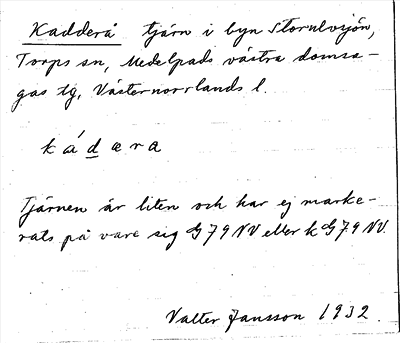 Kadderå tjärn i byn Stornlvsjön,
Torps sn, Medelpads västra domsa-
gas tg, Västernorrlands l.
kádæra
Tjärnen är liten och har ej marke-
rats på vare sig G79NV eller kG79NV.
Valter Jansson 1932.